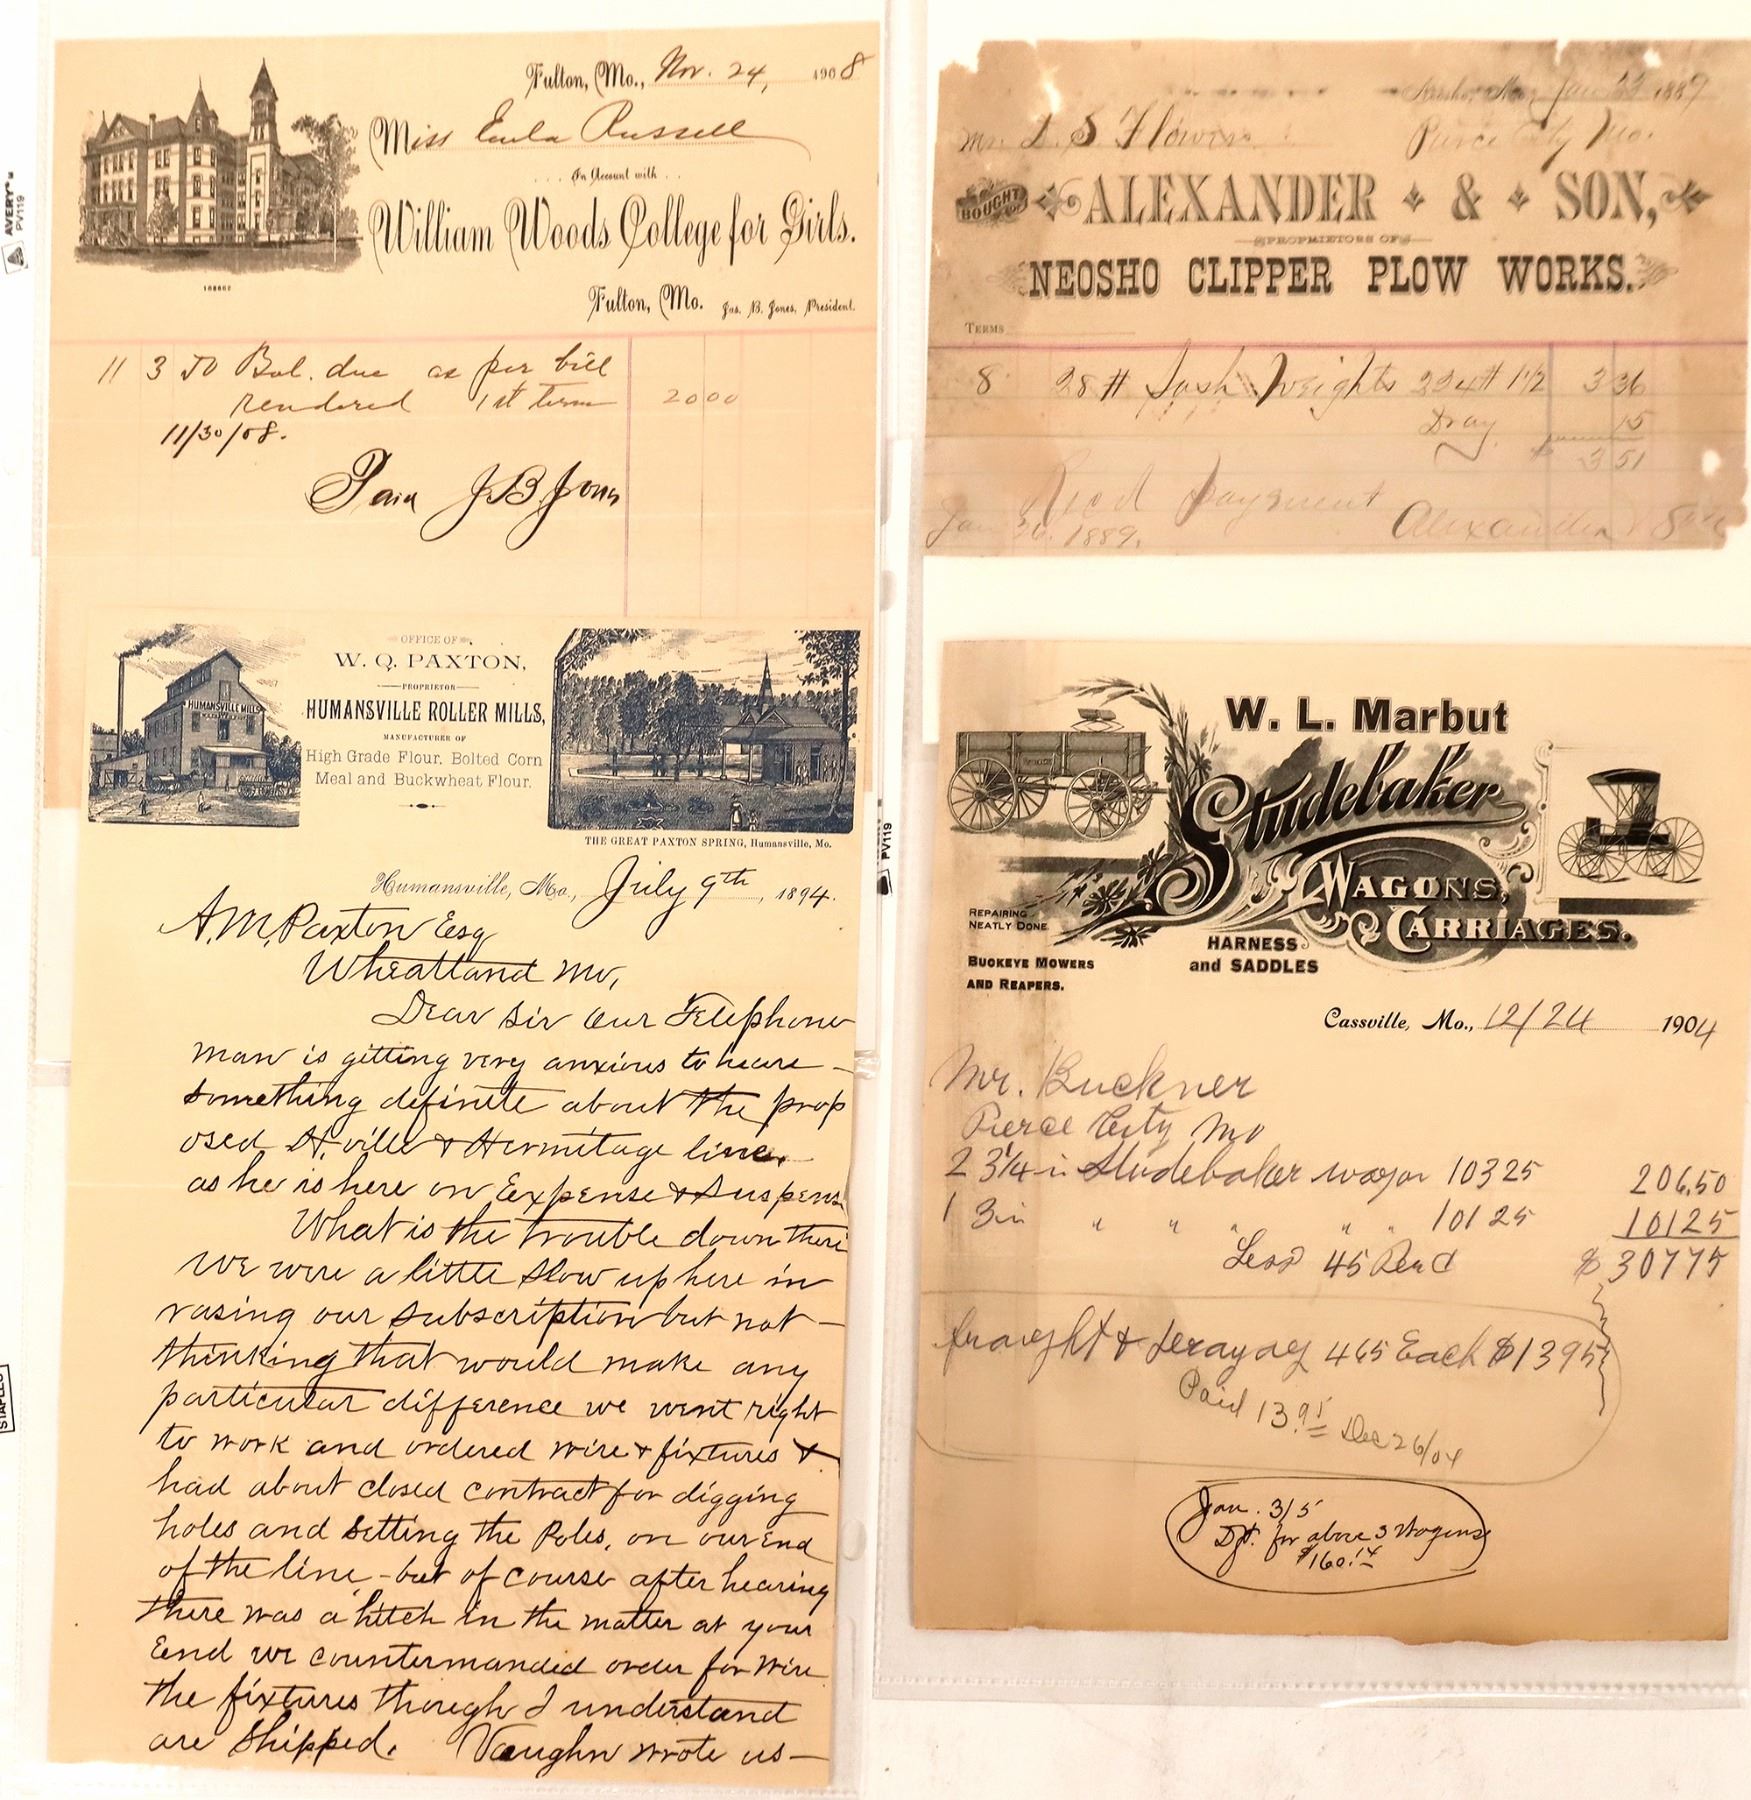 AVERY®
PV119
Fulton, Mo., Nov. 24, 1908
Miss Eula Russell
In Account with
William Woods College for Girls.
Fulton, Mo. Jas. B. Jones, President.
11 3 To Bal. due as per bill
rendered 1st term 20 00
11/30/08.
Paid J. B. Jones
OFFICE OF
W. Q. PAXTON,
PROPRIETOR
HUMANSVILLE ROLLER MILLS,
MANUFACTURER OF
High Grade Flour, Bolted Corn
Meal and Buckwheat Flour.
HUMANSVILLE MILLS
THE GREAT PAXTON SPRING, Humansville, Mo.
Humansville, Mo., July 9th, 1894.
A. M. Paxton Esq
Wheatland Mo,
Dear Sir Our Telephone
man is getting very anxious to heare
something definite about the prop
osed H.ville & Hermitage line.
as he is here on Expense & Suspens
What is the trouble down there
we were a little slow up here in
rasing our subscription but not
thinking that would make any
particular difference we went right
to work and ordered wire & fixtures &
had about closed contract for digging
holes and setting the Poles, on our End
of the line - but of course after hearing
there was a hitch in the matter at your
End we countermanded order for wire
the fixtures though I understand
are shipped. Vaughn wrote us
PV119
STAPLES
Neosho, Mo., Jan 23 1889
Mr. L. S. Flowers Pierce City Mo.
BOUGHT OF
ALEXANDER & SON,
PROPRIETORS OF
NEOSHO CLIPPER PLOW WORKS.
TERMS
8 28 # Sash Weights 224# 1 1/2 3 36
Dray 15
$ 3 51
Recd payment
Jan 26. 1889. Alexander & Son
W. L. Marbut
Studebaker
WAGONS,
CARRIAGES.
REPAIRING
NEATLY DONE
HARNESS
and SADDLES
BUCKEYE MOWERS
AND REAPERS.
Cassville, Mo., 12/24 1904
Mr. Buckner
Pierce City Mo
2 3 1/4 in Studebaker wagon 103 25 206.50
1 3 in " " " " " 101 25 101 25
Less 45 Recd $ 307 75
fraight & Derayag 465 Each $13 95
Paid 13 95 Dec 26/04
Jan. 3/5
Dft. for above 3 Wagons
$160.14